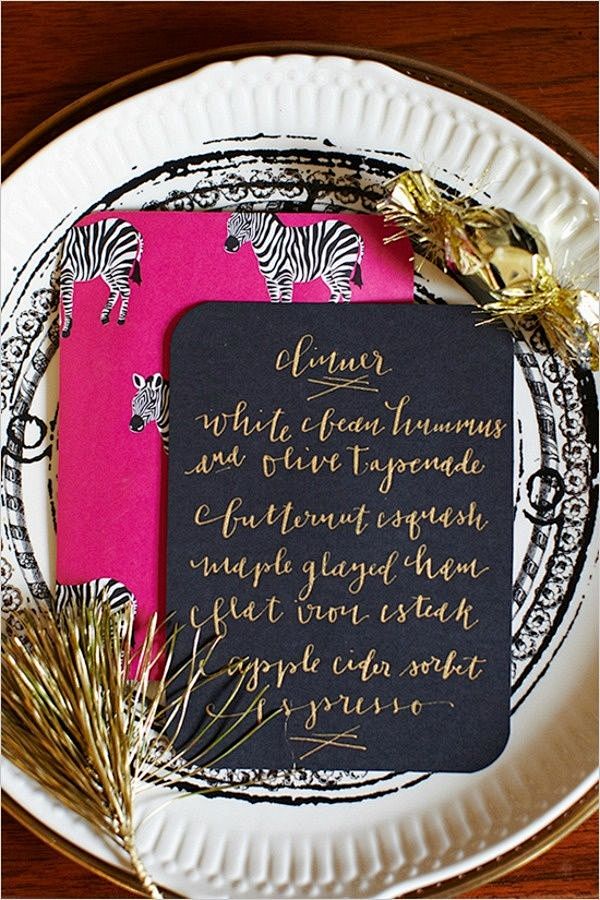 dinner
white bean hummus
and olive Tapenade
butternut squash
maple glazed ham
flat iron steak
apple cider sorbet
espresso